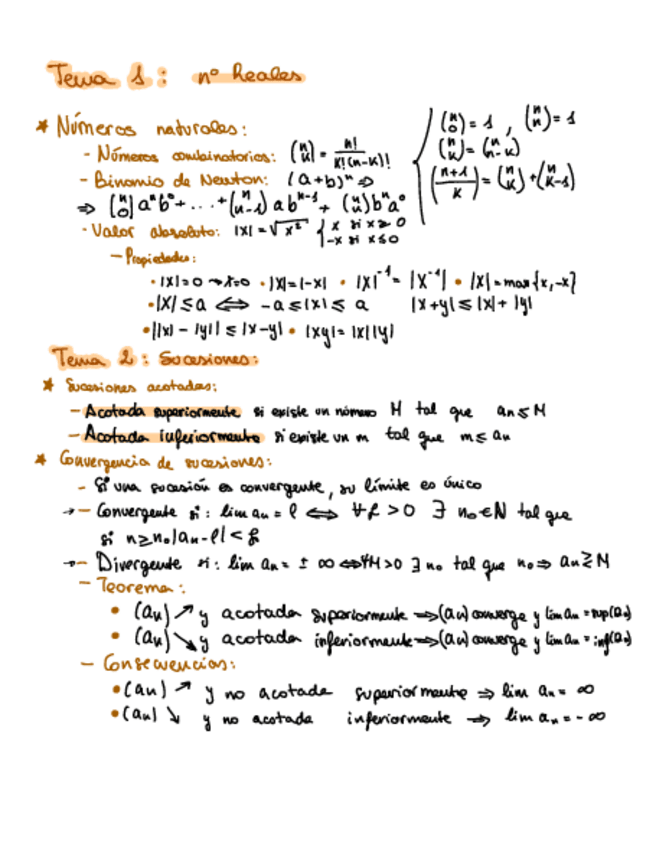 Tema 1: nº Reales
* Números naturales:
- Números combinatorios: (n k) = n! / k!(n-k)!
(n 0) = 1 , (n n) = 1
(n k) = (n n-k)
(n+1 / k) = (n k) + (n k-1)
- Binomio de Newton: (a+b)ⁿ ⇒
⇒ (n 0) aⁿb⁰ + ... + (n n-1) a bⁿ⁻¹ + (n n) bⁿa⁰
- Valor absoluto: |x| = √x² { x si x ≥ 0
-x si x ≤ 0
- Propiedades:
• |x|=0 → x=0 • |x|=|-x| • |x|⁻¹ = |x⁻¹| • |x| = max{x,-x}
• |x| ≤ a ⟺ -a ≤ |x| ≤ a |x+y| ≤ |x| + |y|
• ||x| - |y|| ≤ |x-y| • |xy| = |x||y|
Tema 2: Sucesiones:
* Sucesiones acotadas:
- Acotada superiormente si existe un número M tal que an ≤ M
- Acotada inferiormente si existe un m tal que m ≤ an
* Convergencia de sucesiones:
- Si una sucesión es convergente, su límite es único
→ - Convergente si: lim an = l ⟺ ∀ > 0 ∃ n₀ ∈ N tal que
si n ≥ n₀ |an - l| <
→ - Divergente si: lim an = ± ∞ ⟺ ∀M > 0 ∃ n₀ tal que n₀ ⇒ an ≥ M
- Teorema:
• (an) ↗ y acotada superiormente ⇒ (an) converge y lim an = sup(an)
• (an) ↘ y acotada inferiormente ⇒ (an) converge y lim an = inf(an)
- Consecuencias:
• (an) ↗ y no acotada superiormente ⇒ lim an = ∞
• (an) ↘ y no acotada inferiormente ⇒ lim an = - ∞